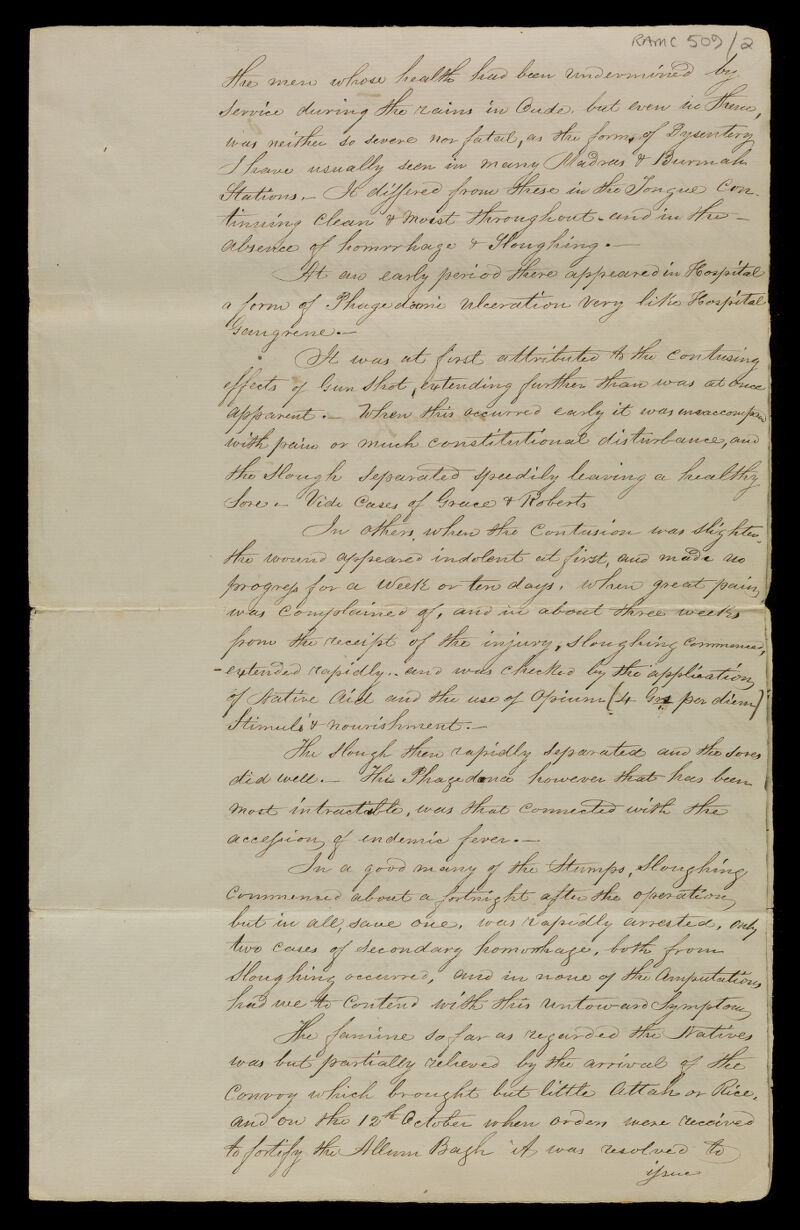 RAMC 509/2
the men whose health had been undermined by
service during the rains in Oude, but even in them,
was neither so severe nor fatal, as the form, of Dysentery
I have usually seen in many Madras & Burmah
Stations. - It differed from these in the Tongue Con-
tinuing Clean & moist throughout - and in the -
absence of homrrhage & Sloughing. -
At an early period there appeared in Hospital
a form of Phagedœnic Ulceration very like Hospital
Gangrene. -
It was at first attributed to the contusing
effects of Gun Shot, extending further than was at once
apparent. - When this occurred early it was unaccompan
with pain or much constitutional disturbance, and
the Slough separated speedily leaving a healthy
Sore - Vide Cases of Grace & Roberts
In others, when the Contusion was slighter,
the wound appeared indolent at first, and made no
progress for a Week or ten days, when great pain,
was complained of, and in about three weeks
from the receipt of the injury, sloughing commenced,
- extended rapidly - and was checked by the application
of Native Acid and the use of Opium (4 Grs per diem)
Stimuli & nourishment. -
The Slough then rapidly separated and the sores
did well. - The Phagedœna however that has been
most intractable, was that connected with the
accession of endemic fever. -
In a good many of the Stumps, Sloughing
Commenced about a fortnight after the operation,
but in all, save one, was rapidly arrested, only
two cases of secondary homorrhage, both from
Sloughing occurred, and in none of the Amputations
had we to Contend with this untoward Symptom
The famine so far as regarded the Natives
was but partially relieved by the arrival of the
Convoy which brought but little Attah or Rice,
and on the 12th October when orders were received
to fortify the Allum Bagh it was resolved to
issue